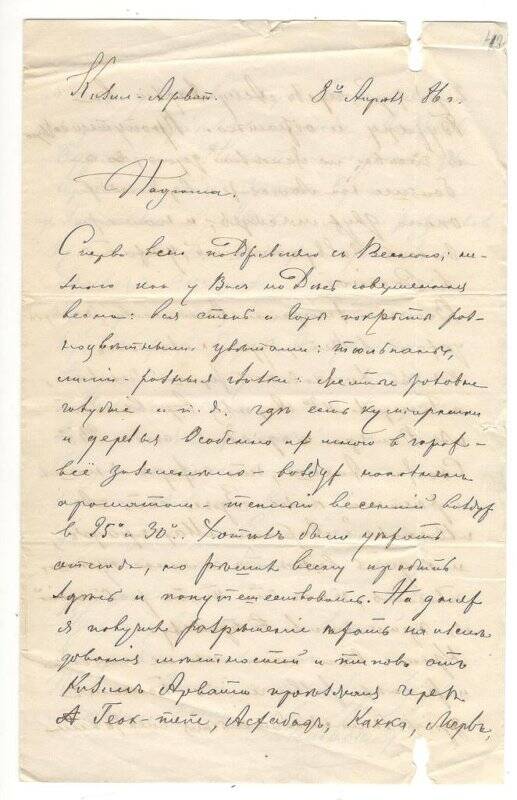 42
Кизил-Арват. 8го Апреля 86 г.
Надюша.
Сперва всего поздравляю съ Весною;
какъ у Васъ по Дому совершенная
весна: вся степь и Горы покрыты раз-
ноцвѣтными цвѣтами: тюльпаны,
разныя желтые розовые
голубые и т. д. гдѣ есть кустарники
и деревья Особенно ихъ много въ горахъ
всё зазеленѣло — воздухъ наполненъ
ароматомъ — теплый весенній воздухъ
въ 25° и 30°. Хотѣлъ было уѣхать
отсюда, но рѣшилъ весну пробыть
здѣсь и попутешествовать. На дняхъ
я получилъ разрѣшеніе ѣхать на изслѣ-
дованія мѣстностей и типовъ отъ
Кизилъ Арвата проѣзжая черезъ
Геок-тепе, Асхабадъ, Каахка, Мервъ,